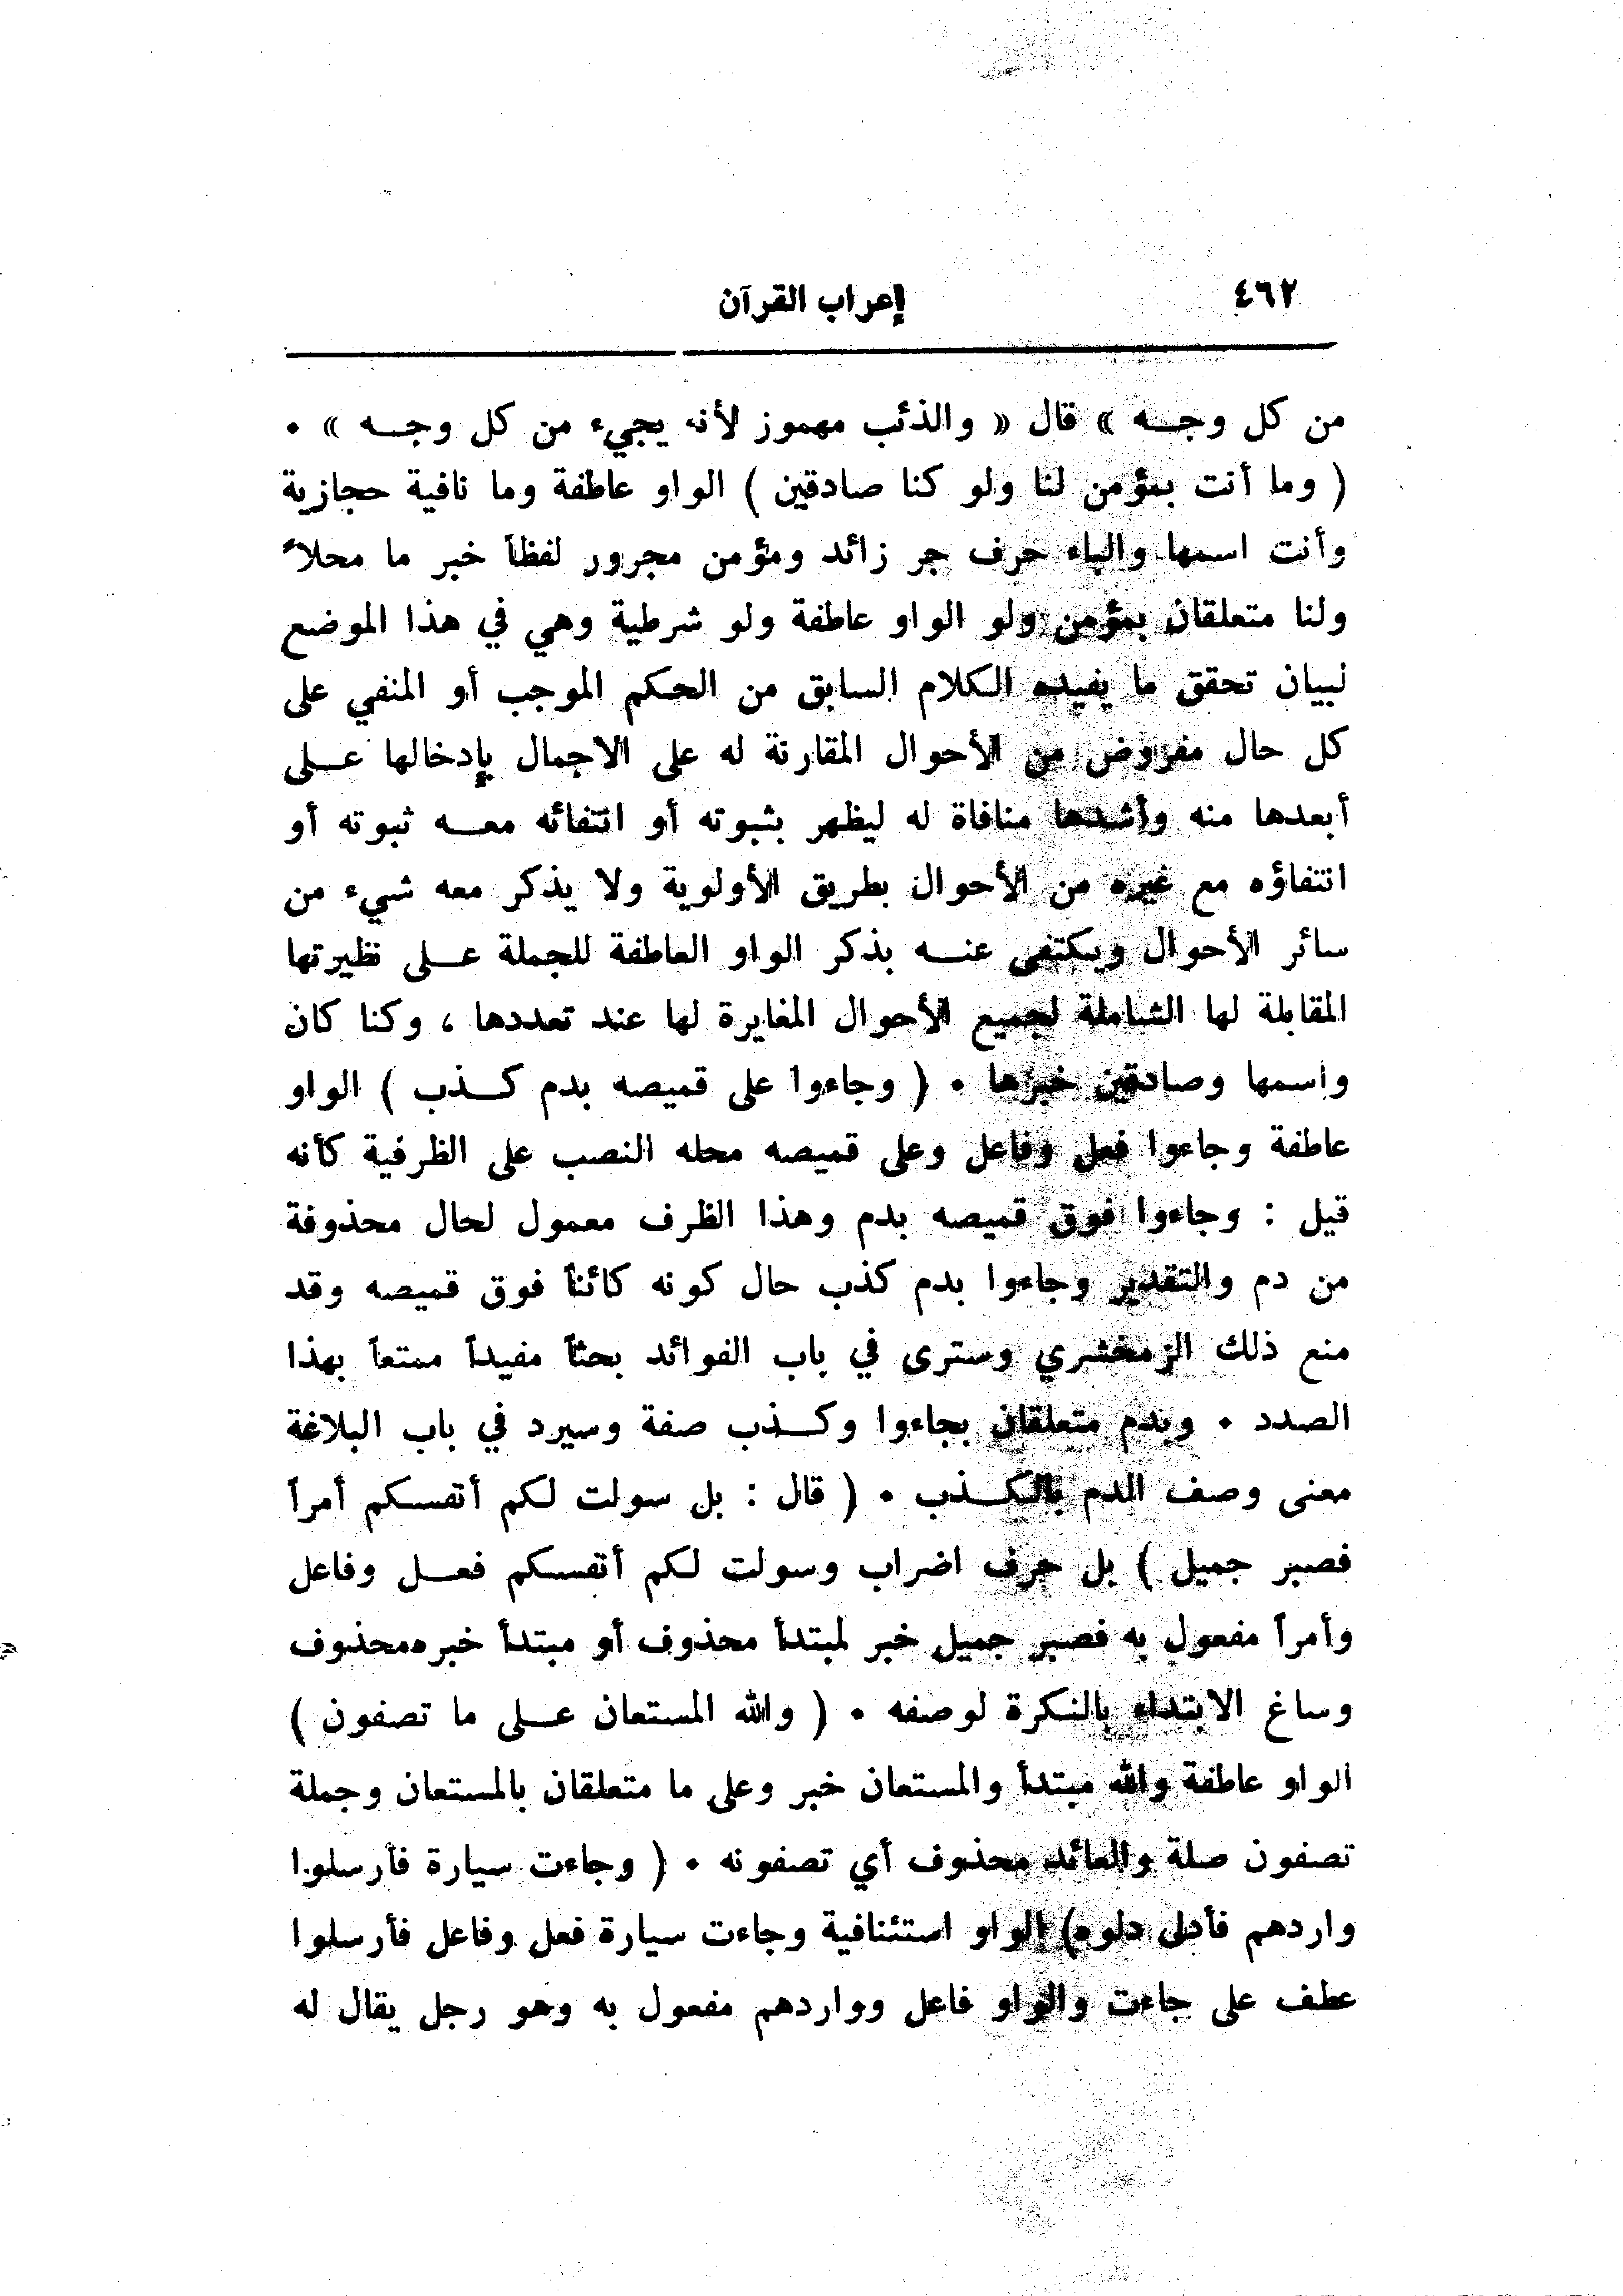 ٤٦٢ إعراب القرآن
من كل وجـــه » قال « والذئب مهموز لأنه يجيء من كل وجـــه » .
( وما أنت بمؤمن لنا ولو كنا صادقين ) الواو عاطفة وما نافية حجازية
وأنت اسمها والباء حرف جر زائد ومؤمن مجرور لفظاً خبر ما محلاً
ولنا متعلقان بمؤمن ولو الواو عاطفة ولو شرطية وهي في هذا الموضع
لبيان تحقق ما يفيده الكلام السابق من الحكم الموجب أو المنفي على
كل حال مفروض من الأحوال المقارنة له على الاجمال بإدخالها عـــلى
أبعدها منه وأشدها منافاة له ليظهر بثبوته أو انتفائه معـــه ثبوته أو
انتفاؤه مع غيره من الأحوال بطريق الأولوية ولا يذكر معه شيء من
سائر الأحوال ويكتفى عنـــه بذكر الواو العاطفة للجملة عـــلى نظيرتها
المقابلة لها الشاملة لجميع الأحوال المغايرة لها عند تعددها ، وكنا كان
واسمها وصادقين خبرها . ( وجاءوا على قميصه بدم كـــذب ) الواو
عاطفة وجاءوا فعل وفاعل وعلى قميصه محله النصب على الظرفية كأنه
قيل : وجاءوا فوق قميصه بدم وهذا الظرف معمول لحال محذوفة
من دم والتقدير وجاءوا بدم كذب حال كونه كائناً فوق قميصه وقد
منع ذلك الزمخشري وسترى في باب الفوائد بحثاً مفيداً ممتعاً بهذا
الصدد . وبدم متعلقان بجاءوا وكـــذب صفة وسيرد في باب البلاغة
معنى وصف الدم بالكـــذب . ( قال : بل سولت لكم أنفسكم أمراً
فصبر جميل ) بل حرف اضراب وسولت لكم أنفسكم فعـــل وفاعل
وأمراً مفعول به فصبر جميل خبر لمبتدأ محذوف أو مبتدأ خبره محذوف
وساغ الابتداء بالنكرة لوصفه . ( والله المستعان عـــلى ما تصفون )
الواو عاطفة والله مبتدأ والمستعان خبر وعلى ما متعلقان بالمستعان وجملة
تصفون صلة والعائد محذوف أي تصفونه . ( وجاءت سيارة فأرسلوا
واردهم فأدلى دلوه) الواو استئنافية وجاءت سيارة فعل وفاعل فأرسلوا
عطف على جاءت والواو فاعل وواردهم مفعول به وهو رجل يقال له